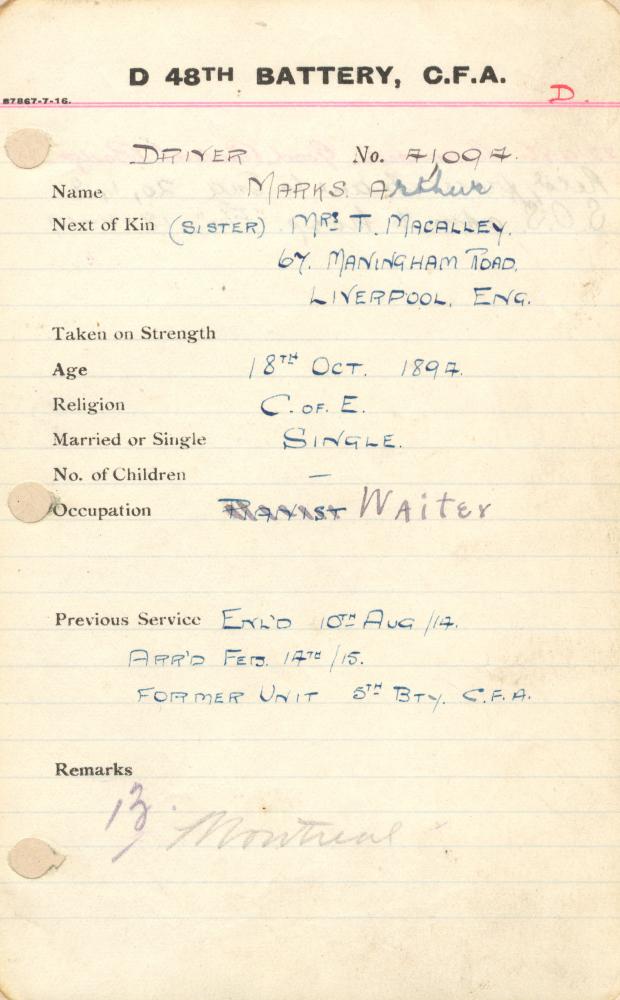 D 48TH BATTERY, C.F.A.
87867-7-16.
D.
DRIVER No. 41094.
Name MARKS. Arthur
Next of Kin (SISTER) MRS T. MACALLEY.
67. MANINGHAM ROAD.
LIVERPOOL. ENG.
Taken on Strength
Age 18TH OCT. 1894.
Religion C. OF. E.
Married or Single SINGLE.
No. of Children –
Occupation Waiter
Previous Service ENL'D 10TH AUG /14.
ARR'D FEB. 14TH /15.
FORMER UNIT 5TH BTY. C.F.A.
Remarks
Montreal